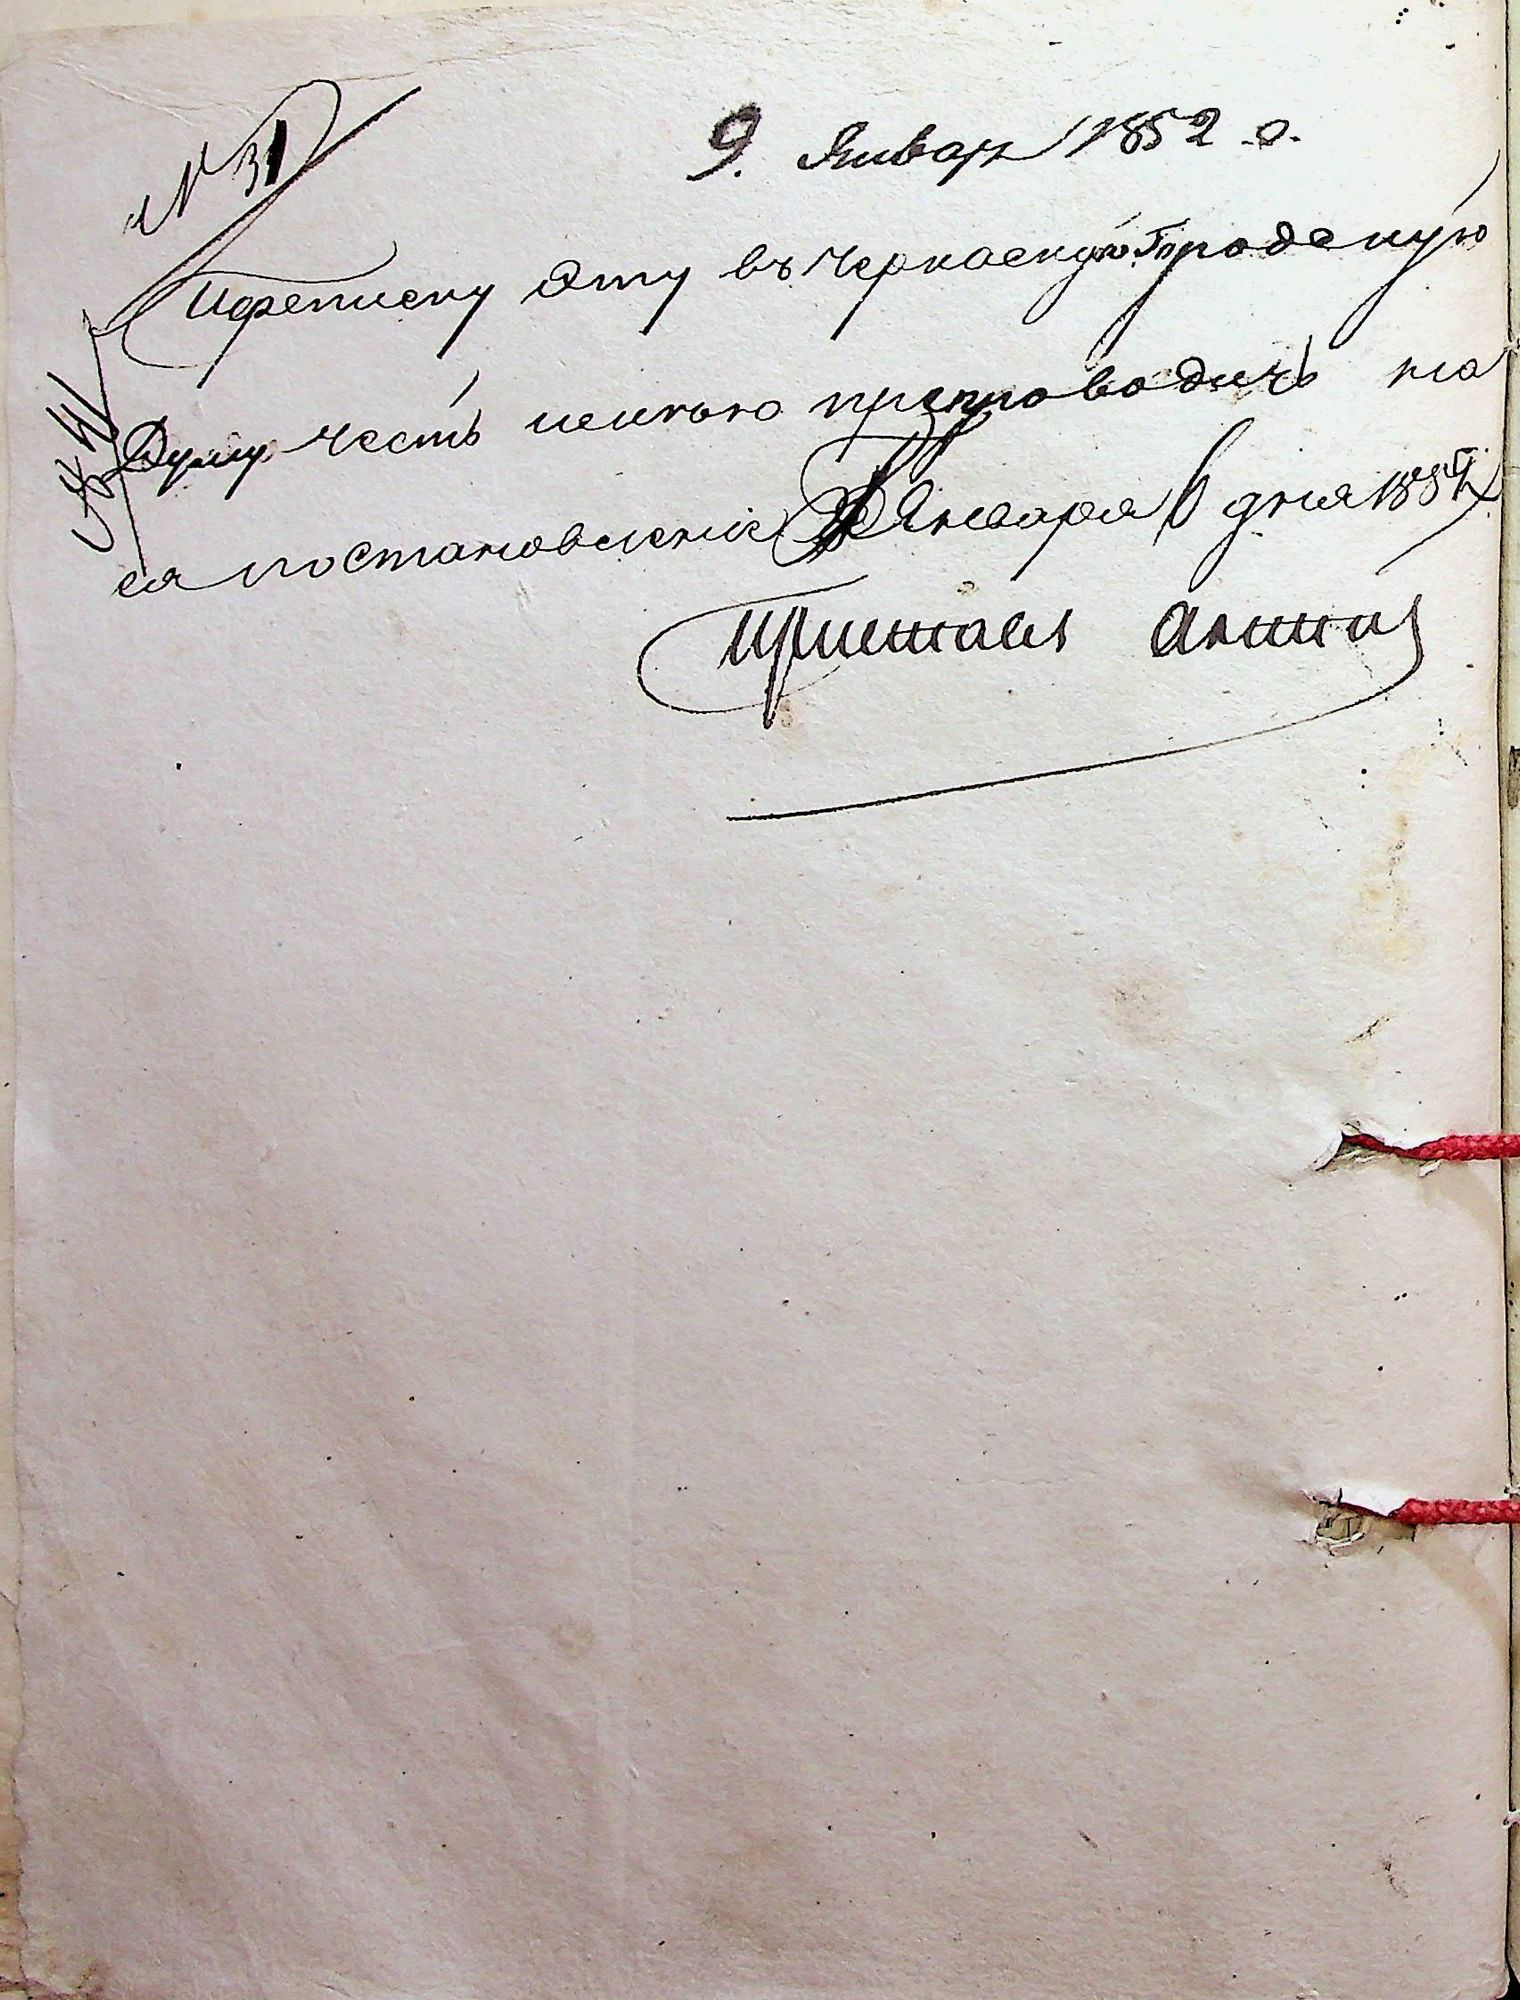 № 31
9. Январ 1852 г.
Переписку эту въ Черкаскую Городскую
Думу честь имею препроводить на
ея постановление Января 6 дня
Приставъ